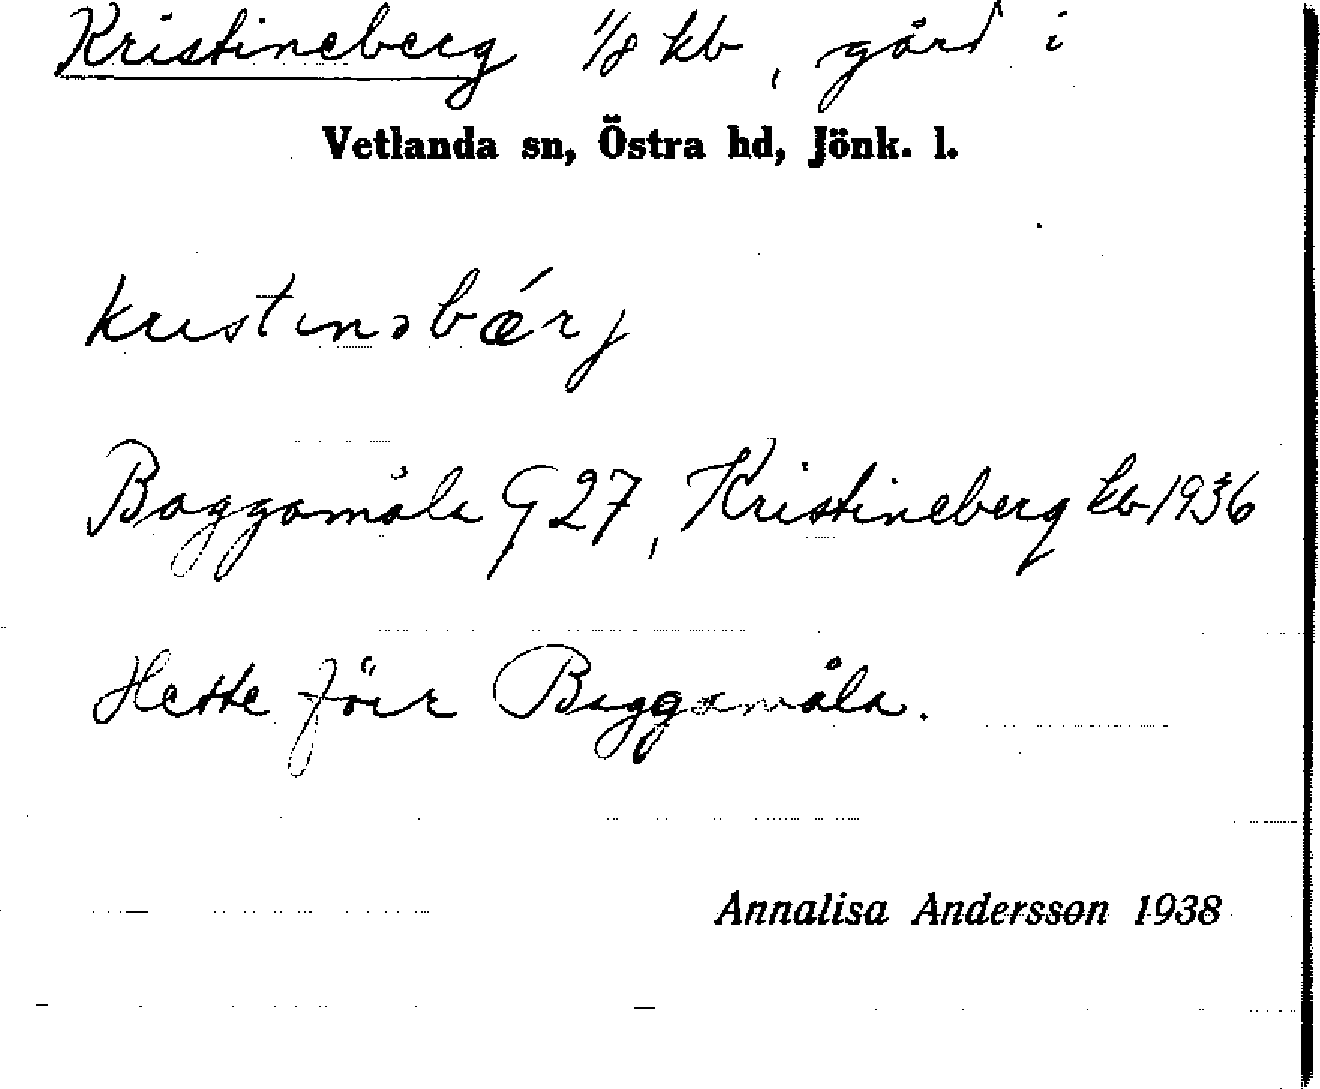 Kristineberg 1/8 kb, gård i
Vetlanda sn, Östra hd, Jönk. l.
kristinəbǽrj
Baggamåla G 27, Kristineberg kb 1936
Hette förr Baggamåla.
Annalisa Andersson 1938